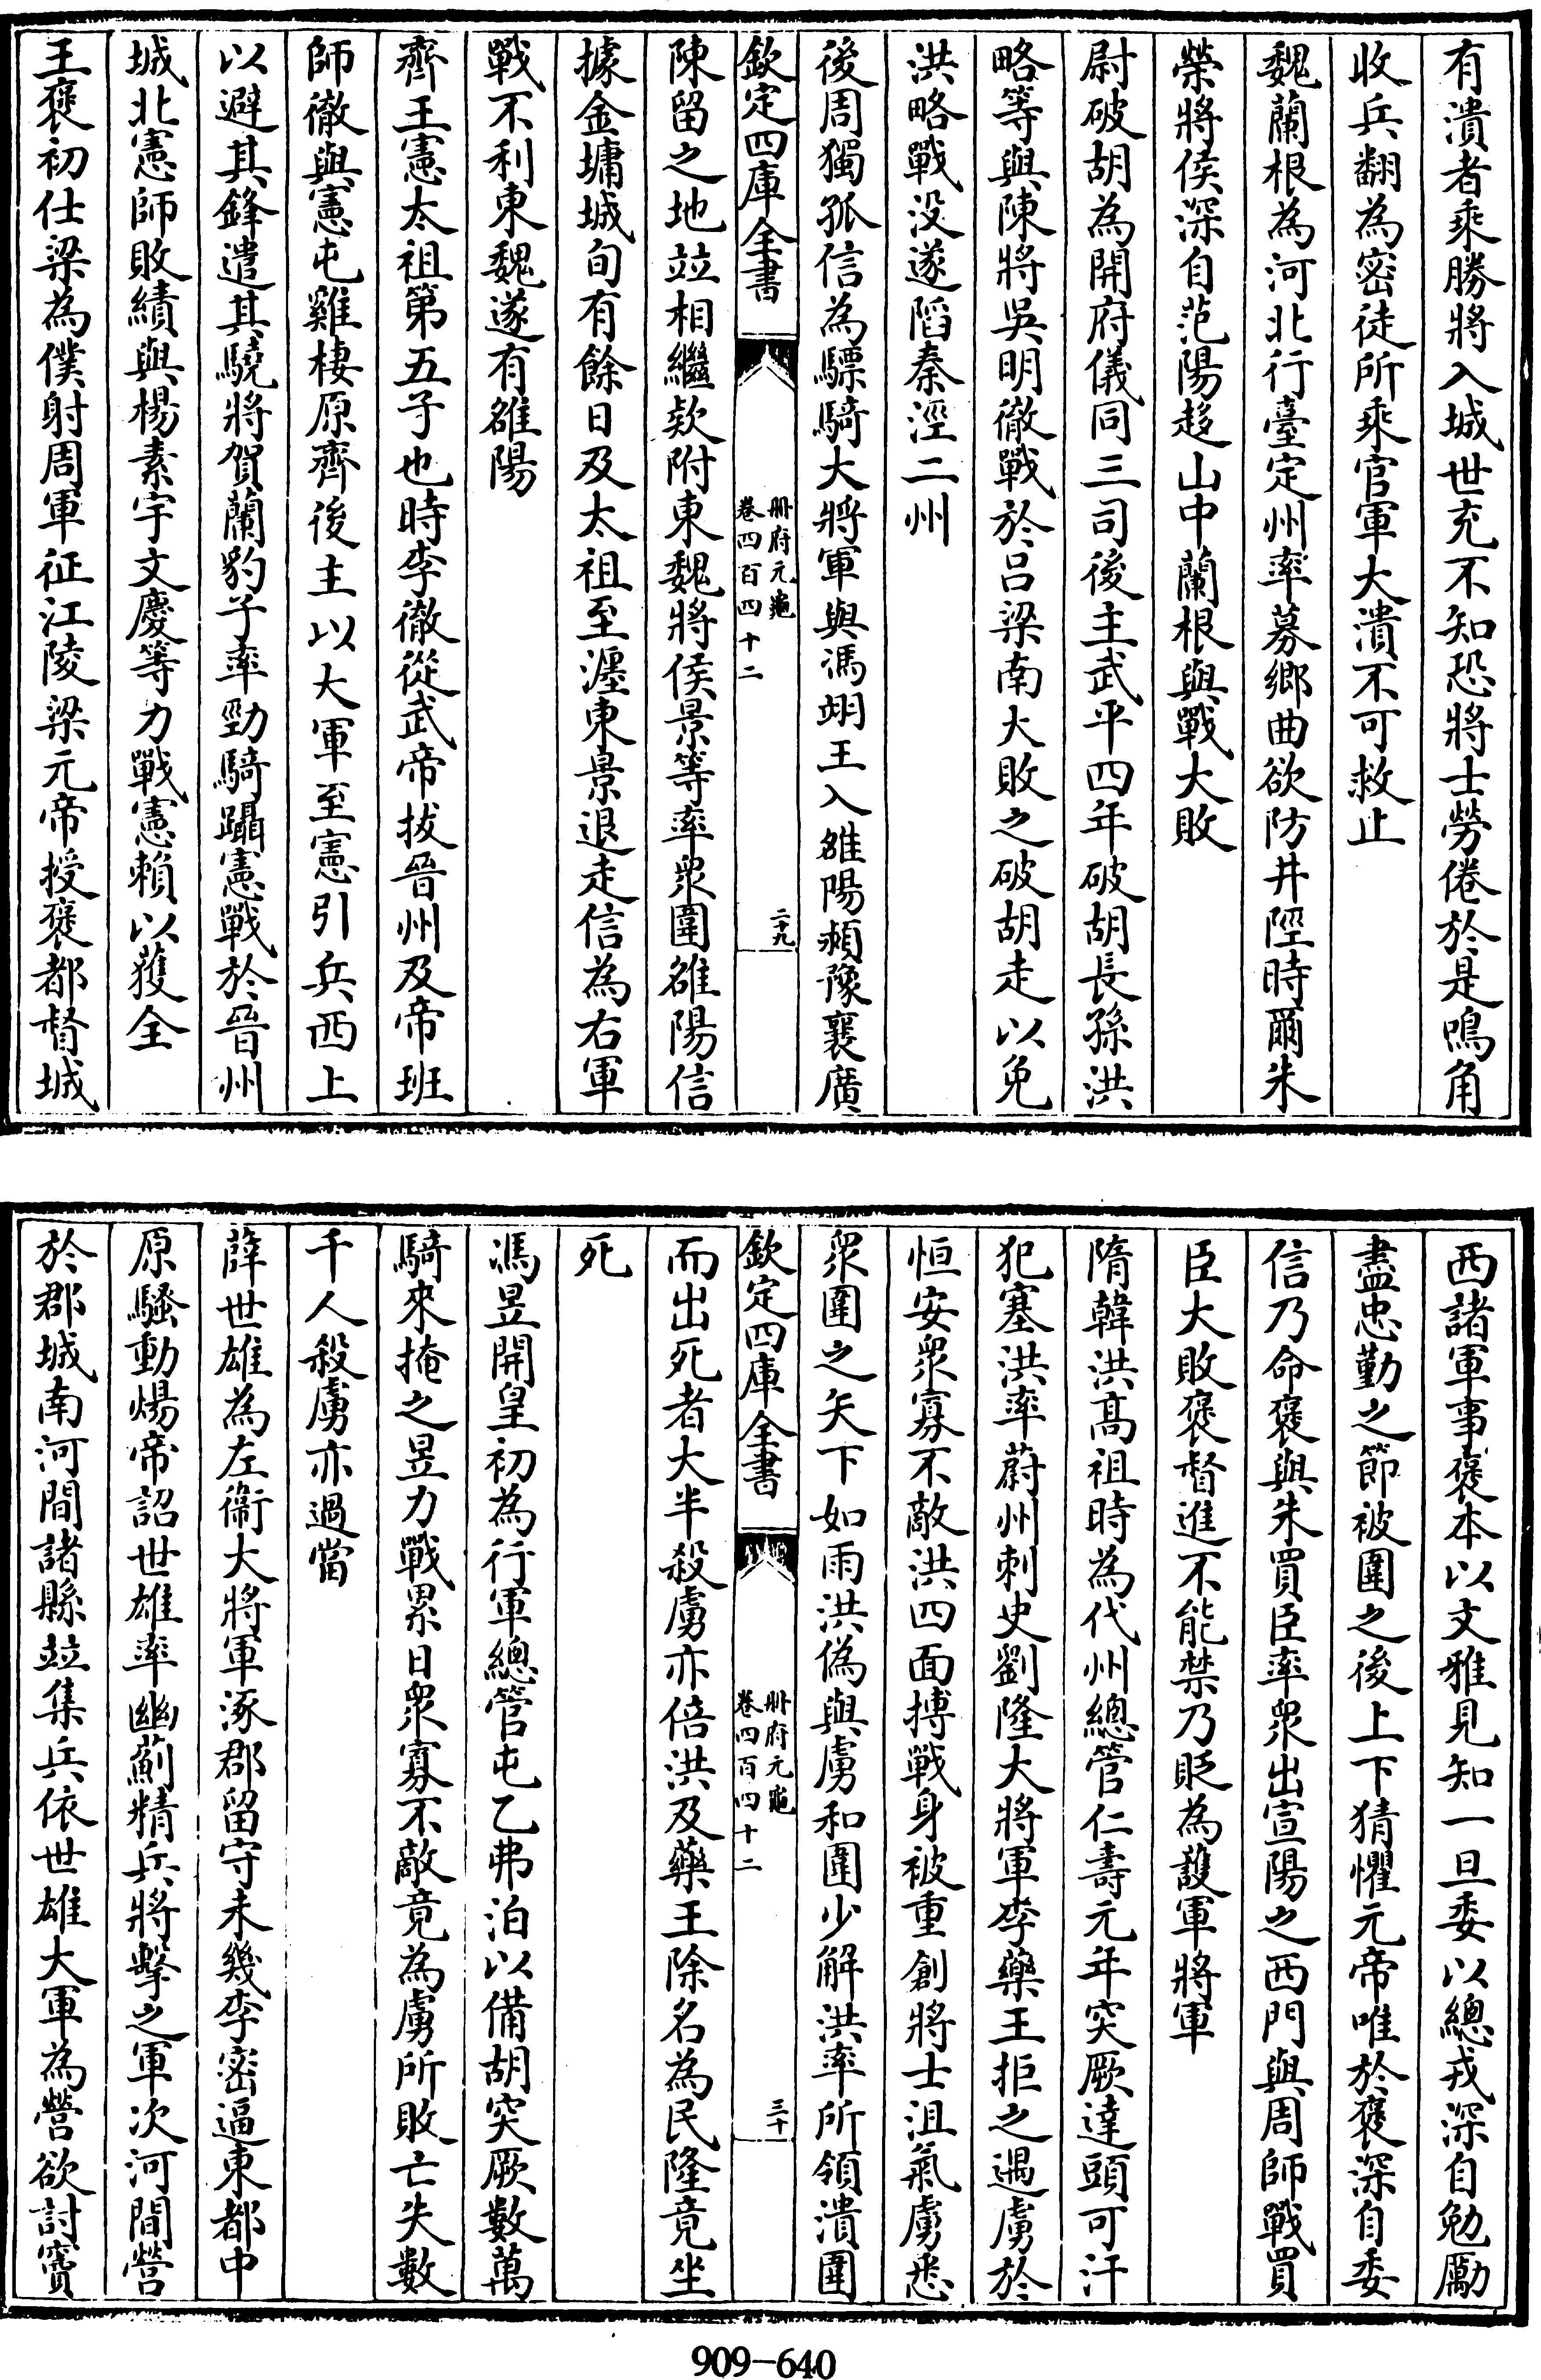 有潰者乘勝將入城世充不知恐將士勞倦於是鳴角
收兵翻為密徒所乘官軍大潰不可救止
魏蘭根為河北行臺定州率募鄉曲欲防井陘時爾朱
榮將侯深自范陽趍山中蘭根與戰大敗
尉破胡為開府儀同三司後主武平四年破胡長孫洪
略等與陳將吳明徹戰於呂梁南大敗之破胡走以免
洪略戰没遂䧟秦涇二州
後周獨孤信為驃騎大將軍與馮翊王入雒陽潁豫襄廣
欽定四庫全書
冊府元龜
卷四百四十二
二十九
陳留之地竝相繼欵附東魏將侯景等率衆圍雒陽信
據金墉城旬有餘日及太祖至瀍東景退走信為右軍
戰不利東魏遂有雒陽
齊王憲太祖第五子也時李徹從武帝拔晉州及帝班
師徹與憲屯雞棲原齊後主以大軍至憲引兵西上
以避其鋒遣其驍將賀蘭豹子率勁騎躡憲戰於晉州
城北憲師敗績與楊素宇文慶等力戰憲賴以獲全
王襃初仕梁為僕射周軍征江陵梁元帝授襃都督城
西諸軍事襃本以文雅見知一旦委以總戎深自勉勵
盡忠勤之節被圍之後上下猜懼元帝唯於襃深自委
信乃命襃與朱買臣率衆出宣陽之西門與周師戰買
臣大敗襃督進不能禁乃貶為護軍將軍
隋韓洪髙祖時為代州總管仁壽元年突厥達頭可汗
犯塞洪率蔚州刺史劉隆大將軍李藥王拒之遇虜於
恒安衆寡不敵洪四面搏戰身被重創將士沮氣虜悉
衆圍之矢下如雨洪偽與虜和圍少解洪率所領潰圍
欽定四庫全書
冊府元龜
卷四百四十二
三十
而出死者大半殺虜亦倍洪及藥王除名為民隆竟坐
死
馮昱開皇初為行軍總管屯乙弗泊以備胡突厥數萬
騎來掩之昱力戰累日衆寡不敵竟為虜所敗亡失數
千人殺虜亦過當
薛世雄為左衞大將軍涿郡留守未幾李密逼東都中
原騷動煬帝詔世雄率幽薊精兵將擊之軍次河間營
於郡城南河間諸縣竝集兵依世雄大軍為營欲討竇
909-640